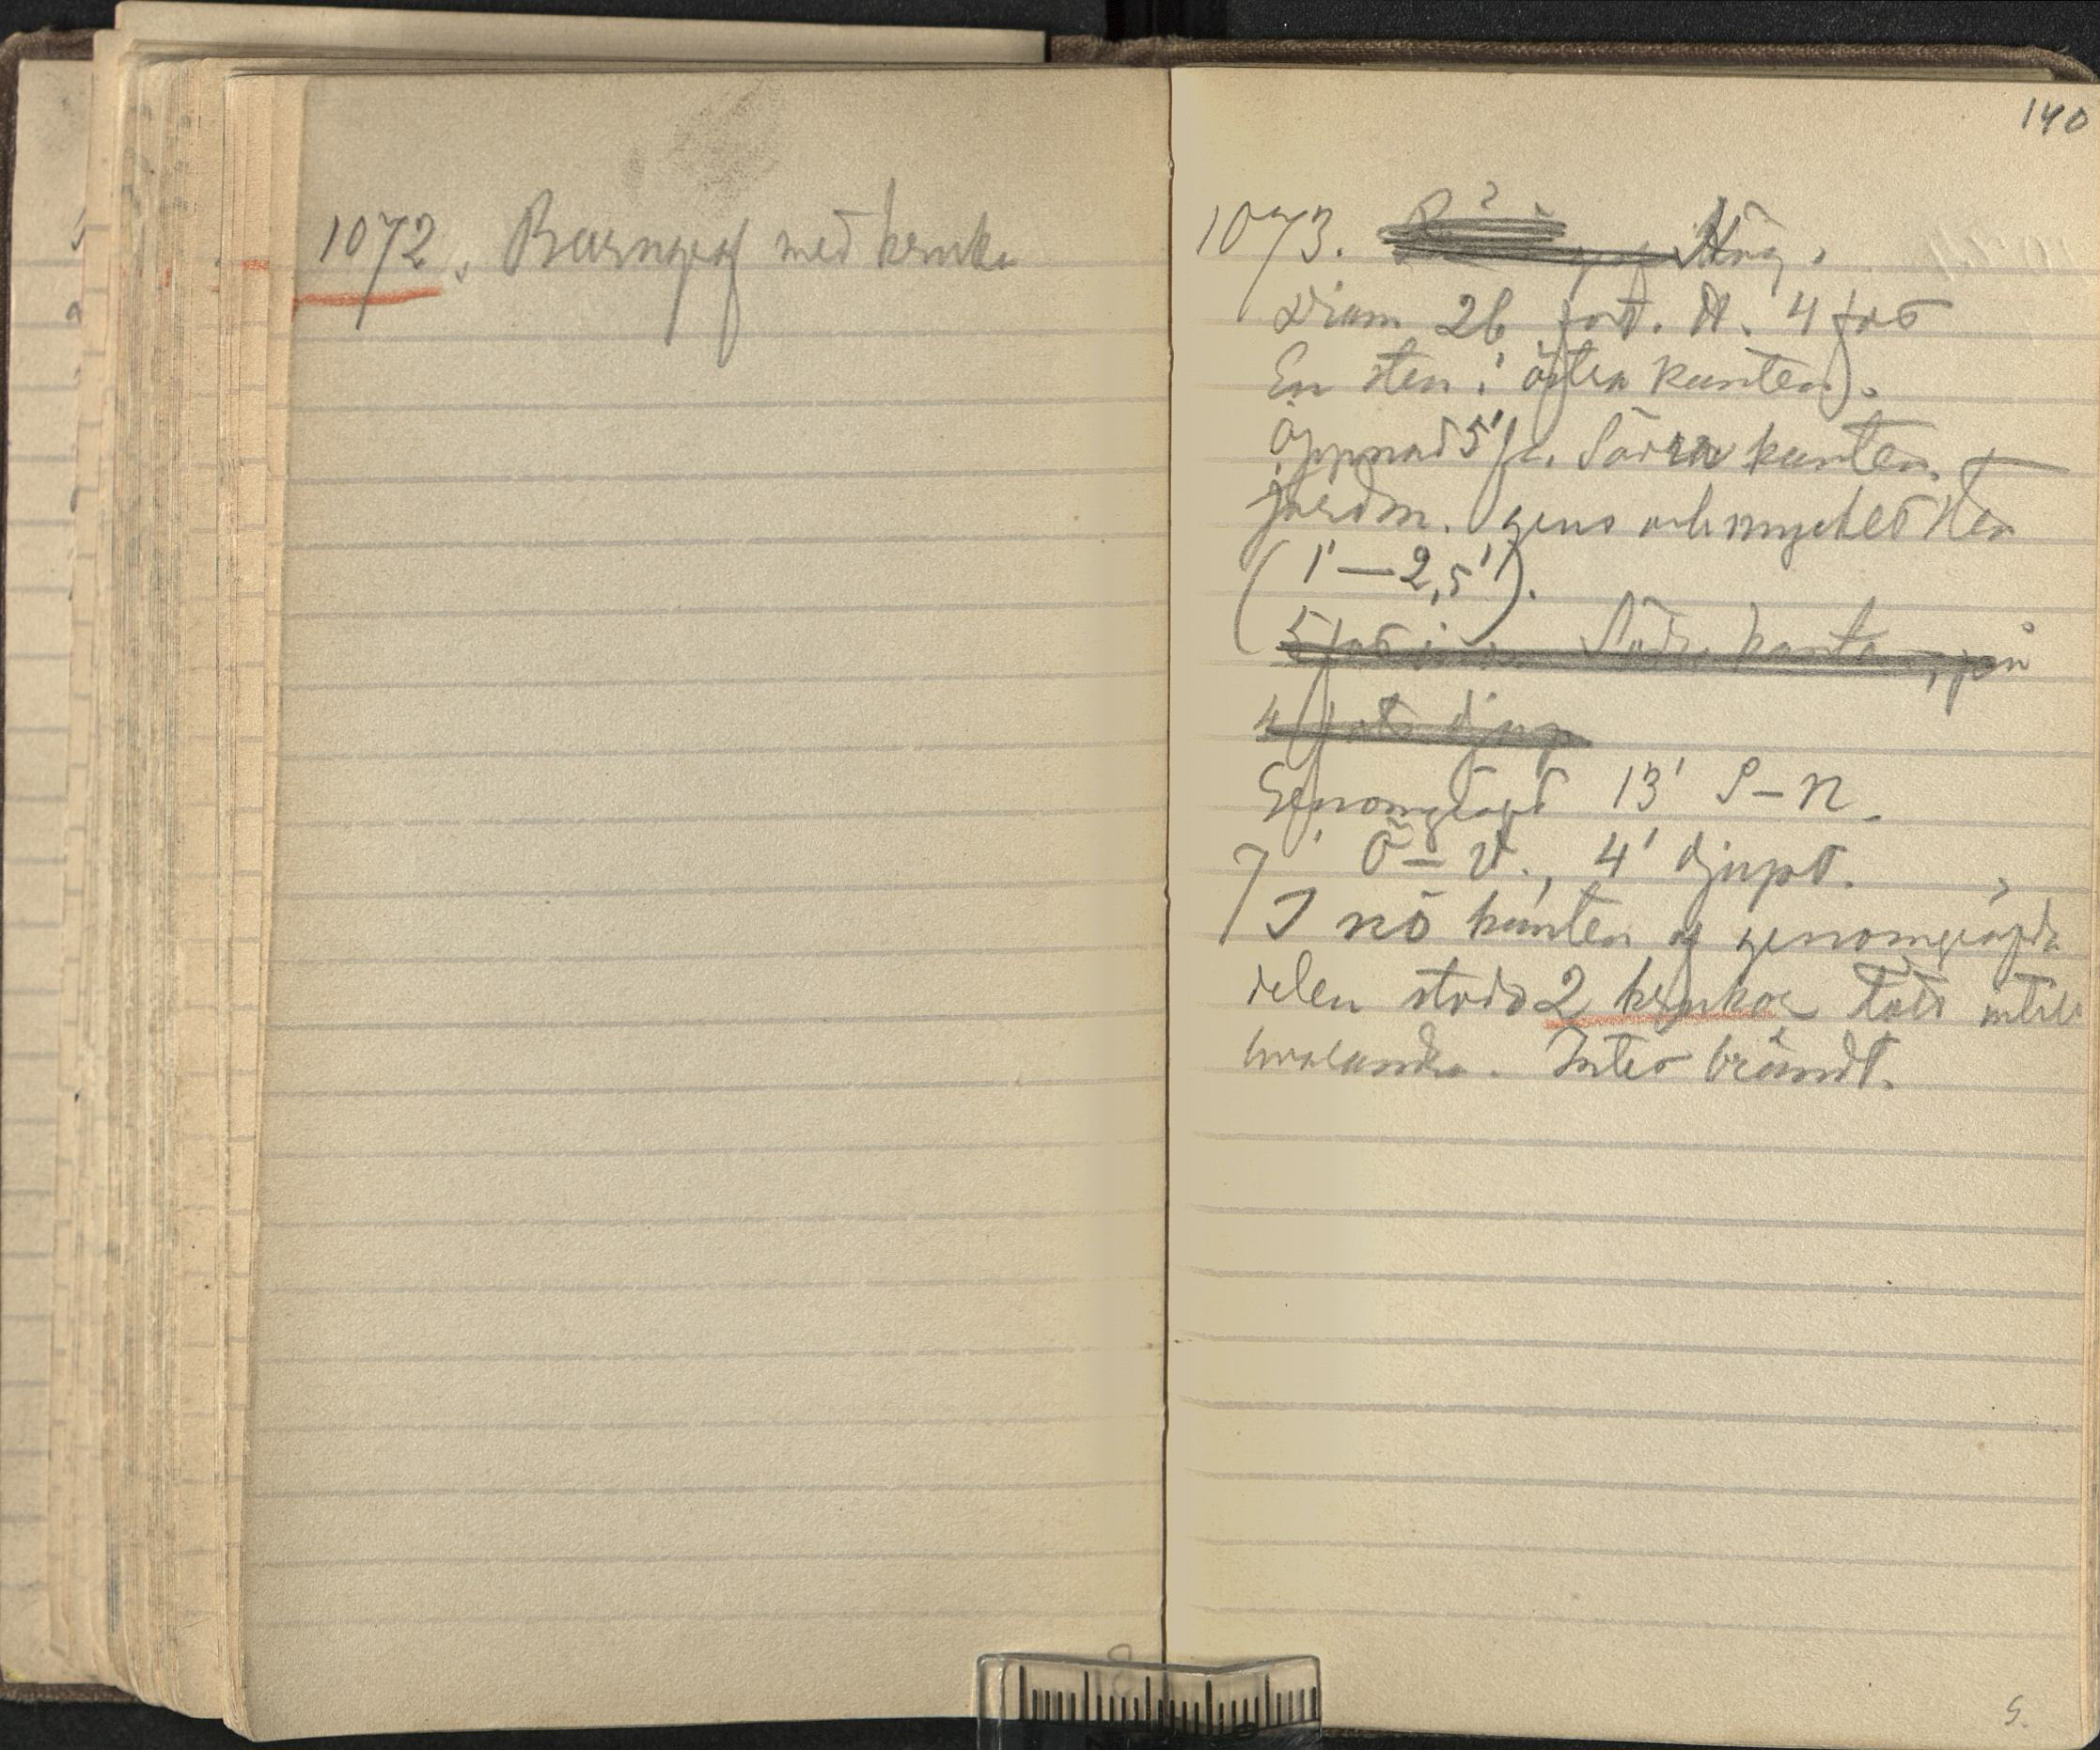 1072. Barngraf med kruka
140
1073. Hög.
Diam 26 fot. H. 4 fot
En sten i östra kanten.
Öppnad 5' fr. Södra kanten.
Jordm. grus och mycket sten
(1'—2,5').
5 fot i Södra kanten, på
4 fots djup
Genomgräfd 13' S—N.
7' Ö—V., 4' djupt.
I NÖ kanten af genomgräfda
delen stodo 2 krukor tätt intill
hvarandra. Intet brändt.
S.